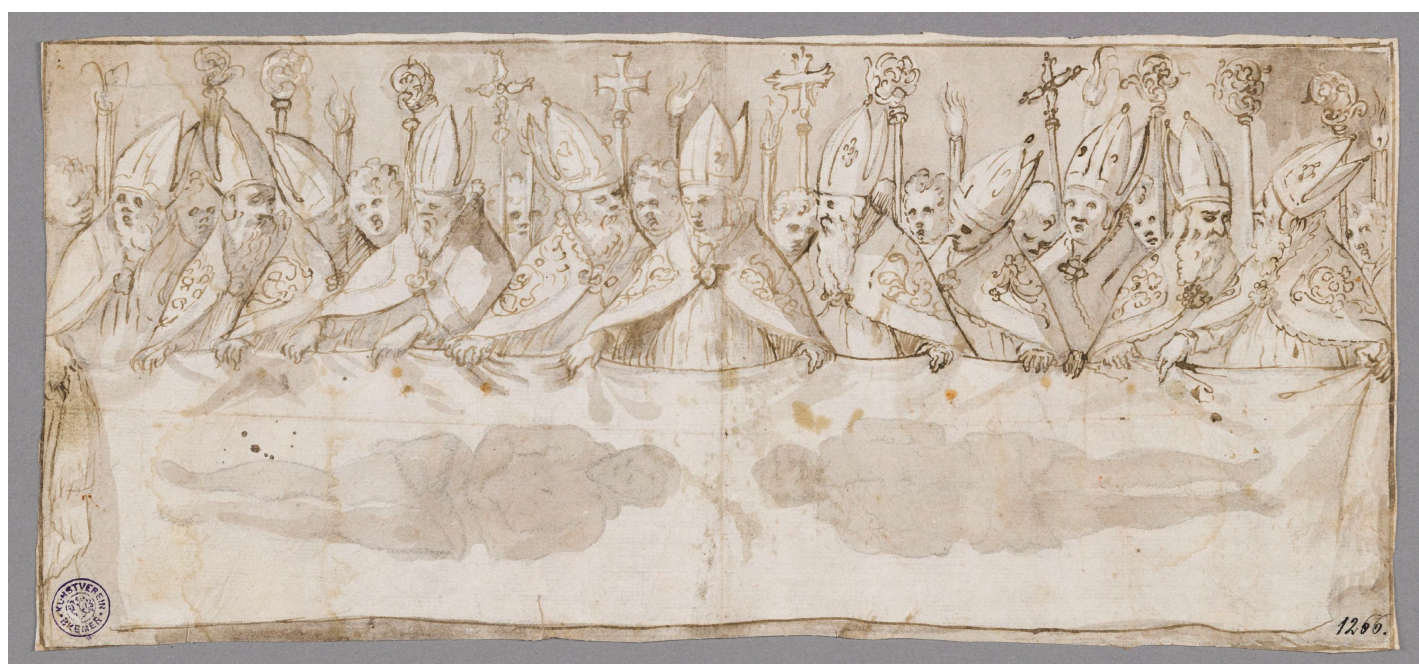 KUNSTVEREIN
BREMEN
1266.